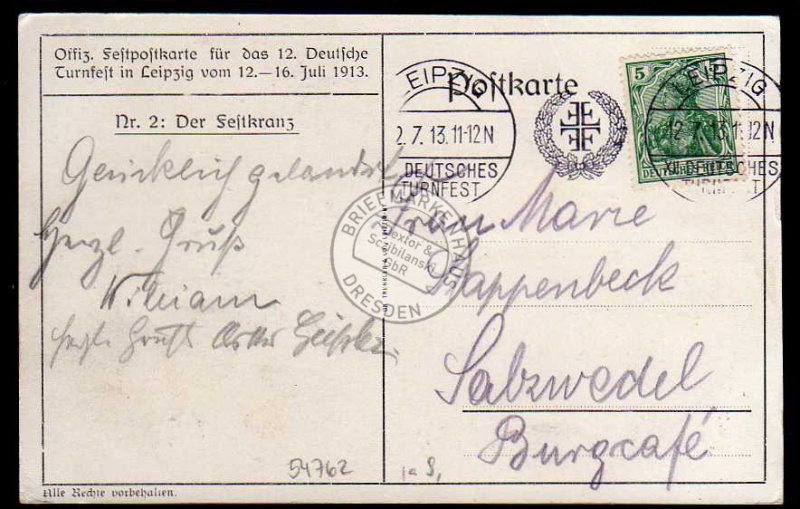 Offiz. Festpostkarte für das 12. Deutsche
Turnfest in Leipzig vom 12.—16. Juli 1913.
Nr. 2: Der Festkranz
Postkarte
LEIPZIG
12.7.13.11-12N
DEUTSCHES
TURNFEST
5
DEUTSCHES REICH
LEIPZIG
12.7.13.11-12N
DEUTSCHES
TURNFEST
Glücklich gelandet
Herzl. Gruß
William
Frau Marie
Kappenbeck
Salzwedel
Burgcafé
BRIEFMARKENHAUS
Textor &
Scibilanski
GbR
DRESDEN
54762
Alle Rechte vorbehalten.